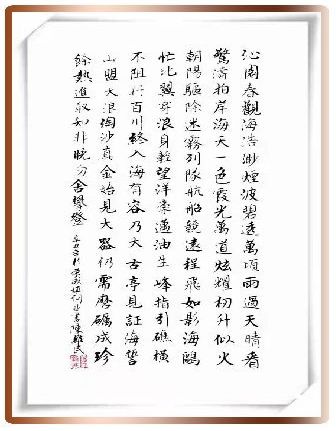 沁園春觀海浩渺煙波碧透萬頃雨過天晴看
驚濤拍岸海天一色霞光萬道炫耀初升似火
朝陽驅除迷霧列隊航船競遠程飛如影海鷗
忙比翼浪身輕望洋豪邁油生峰指引礁橫
不阻行百川終入海有容乃大古亭見証海誓
山盟大浪淘沙真金始見大器仍需磨礪成珍
餘熱進取如非晚勿舍攀登